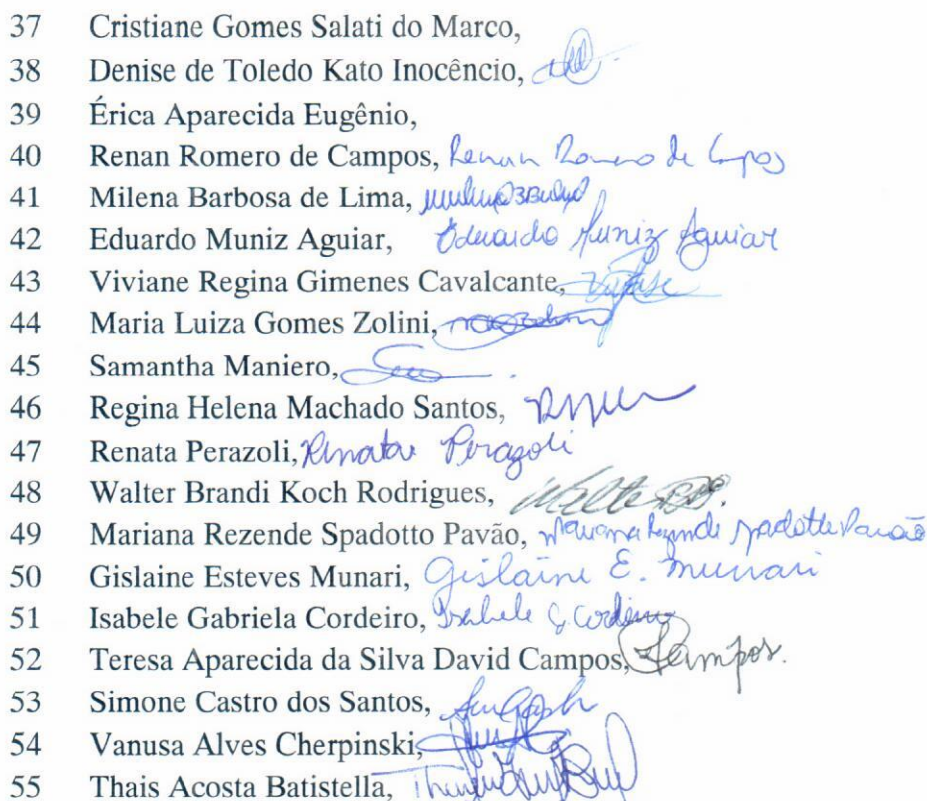 37 Cristiane Gomes Salati do Marco,
38 Denise de Toledo Kato Inocêncio,
39 Érica Aparecida Eugênio,
40 Renan Romero de Campos, Renan Romero de Campos
41 Milena Barbosa de Lima,
42 Eduardo Muniz Aguiar, Eduardo Muniz Aguiar
43 Viviane Regina Gimenes Cavalcante,
44 Maria Luiza Gomes Zolini,
45 Samantha Maniero,
46 Regina Helena Machado Santos,
47 Renata Perazoli, Renata Perazoli
48 Walter Brandi Koch Rodrigues, Walter
49 Mariana Rezende Spadotto Pavão, Mariana Rezende Spadotto Pavão
50 Gislaine Esteves Munari, Gislaine E. Munari
51 Isabele Gabriela Cordeiro, Isabele G. Cordeiro
52 Teresa Aparecida da Silva David Campos, Campos.
53 Simone Castro dos Santos,
54 Vanusa Alves Cherpinski,
55 Thais Acosta Batistella,